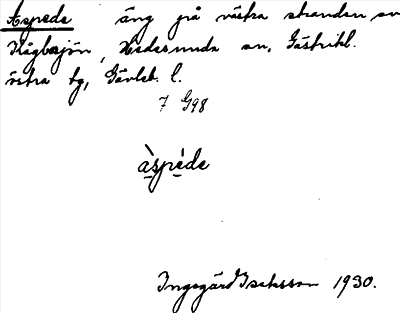 Aspede äng på västra stranden av
Hågbosjön, Hedesunda sn, Gästrikl.
östra tg, Gävleb. l.
7 G98
àspède
Ingegärd Isaksson 1930.